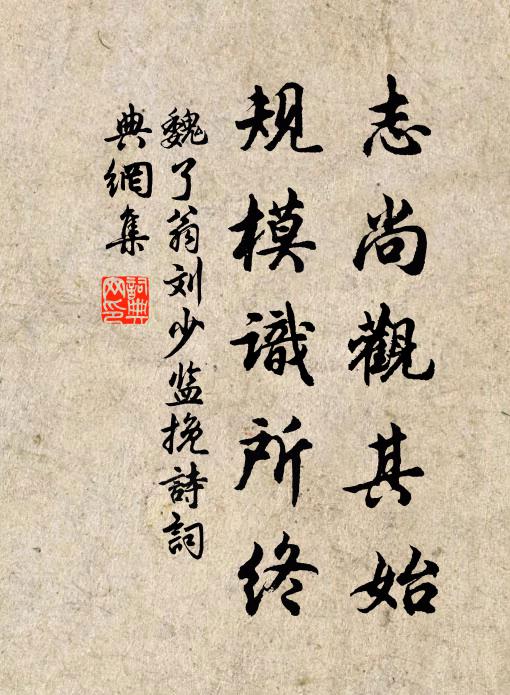 志尚觀其始
規模識所终
魏了翁刘少监挽詩詞
典網集
詞典网印